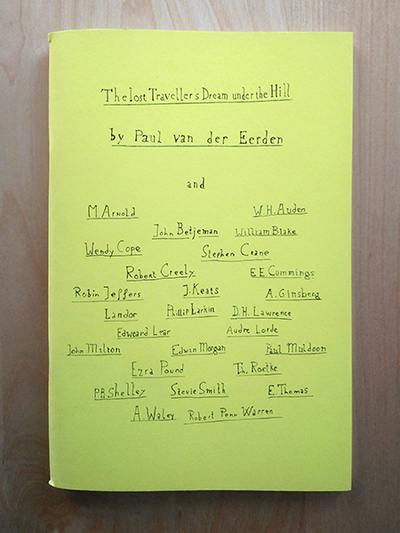 The lost Travellers Dream under the Hill
by Paul van der Eerden
and
M. Arnold W.H. Auden
John Betjeman William Blake
Wendy Cope Stephen Crane
Robert Creely E.E. Cummings
Robin Jeffers J. Keats A. Ginsberg
Landor Phillip Larkin D.H. Lawrence
Edward Lear Audre Lorde
John Milton Edwin Morgan Paul Muldoon
Ezra Pound Th. Roetke
P.B. Shelley Stevie Smith E. Thomas
A. Waley Robert Penn Warren